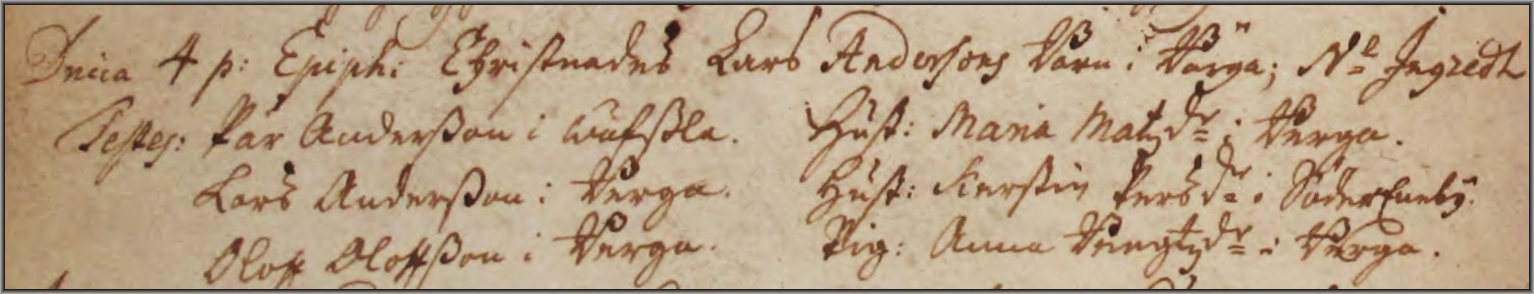 Dnica 4 p: Epiph: Christnades Lars Andersons Barn i Bärga; Nl Ingredh
Testes: Pär Anderßon i Hust: Maria Matzdr i Berga.
Lars Anderßon i Berga. Hust: Kerstin Persdr i SöderEneby.
Oloff Oloffßon i Berga. Pig: Anna Bengtzdr i Berga.